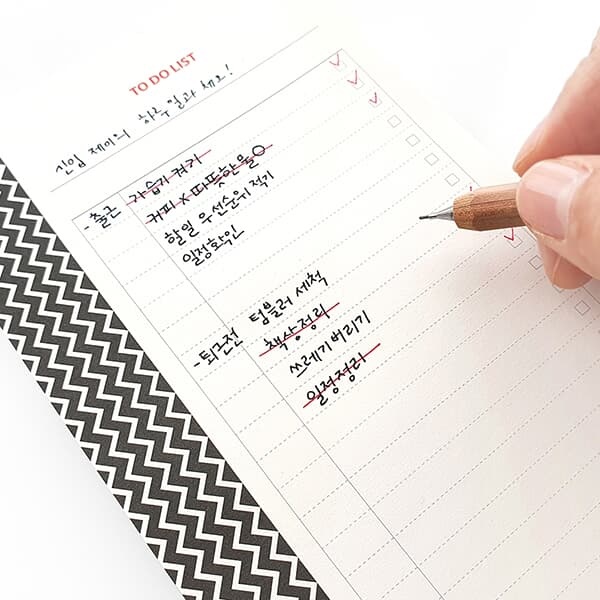 TO DO LIST
신입 제이의 하루 일과 체크!
-출근 가습기 켜기
커피 X 따뜻한 물 O
할일 우선순위 적기
일정확인
-퇴근전 텀블러 세척
책상정리
쓰레기 버리기
일정정리